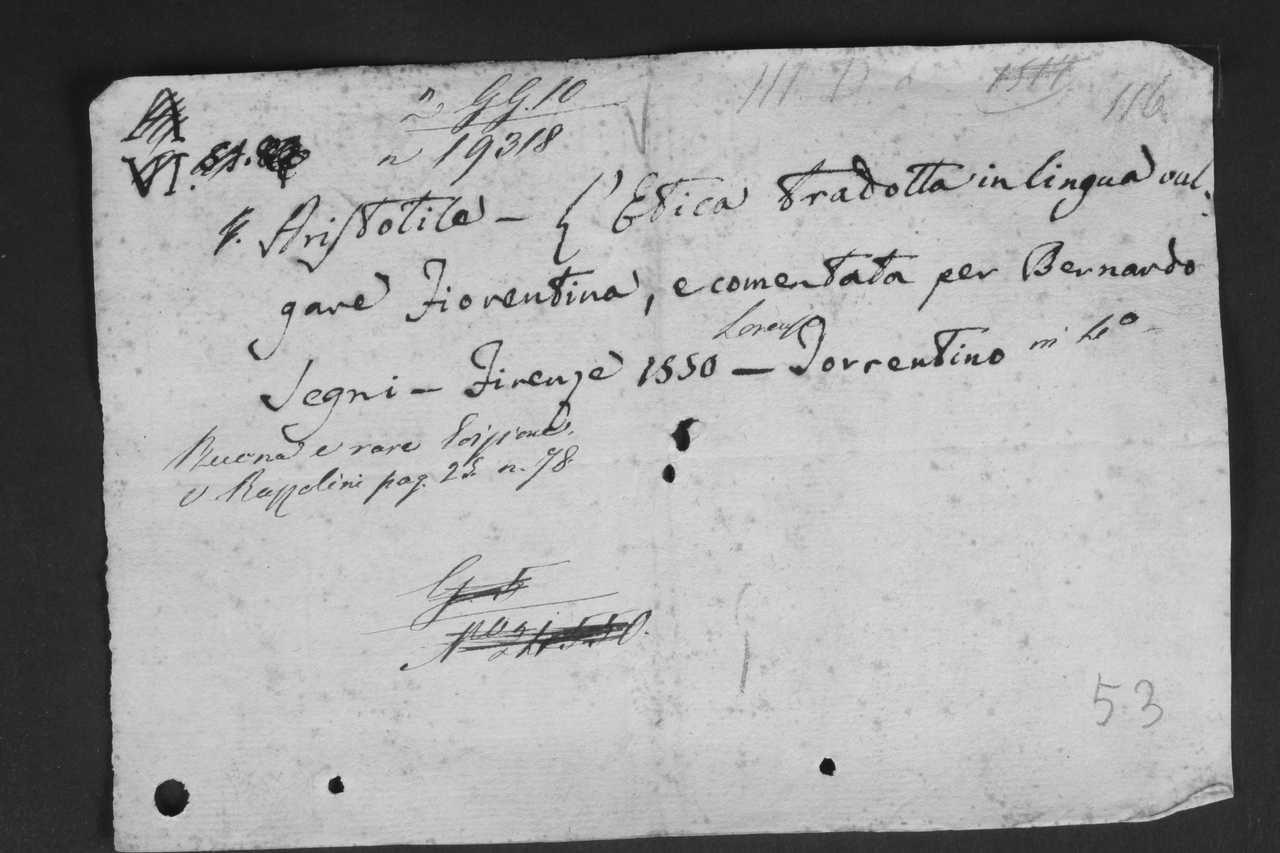 n GG.10
n 19318
III. D
1544
116
VI.
4. Aristotile – L'Etica tradotta in lingua vul-
gare Fiorentina, e comentata per Bernardo
Segni – Firenze 1550 – Lorenzo Torrentino in 4º
Buona e rara Edizione.
V Razzolini pag. 25. n. 78
G. 5
Nº
53